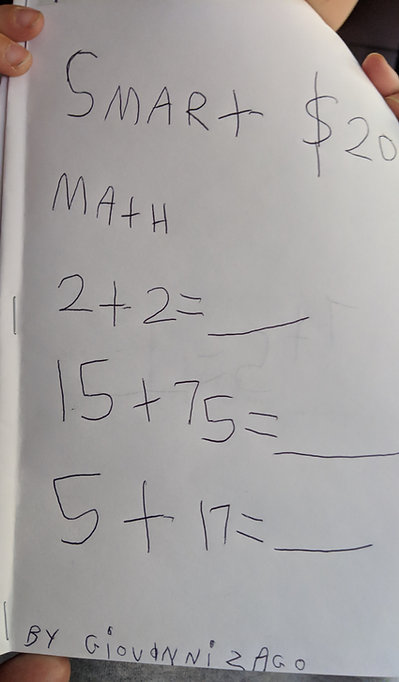 SMARt $20
MAtH
2+2=___
15+75=___
5+17=___
BY GiovANNi ZAGO